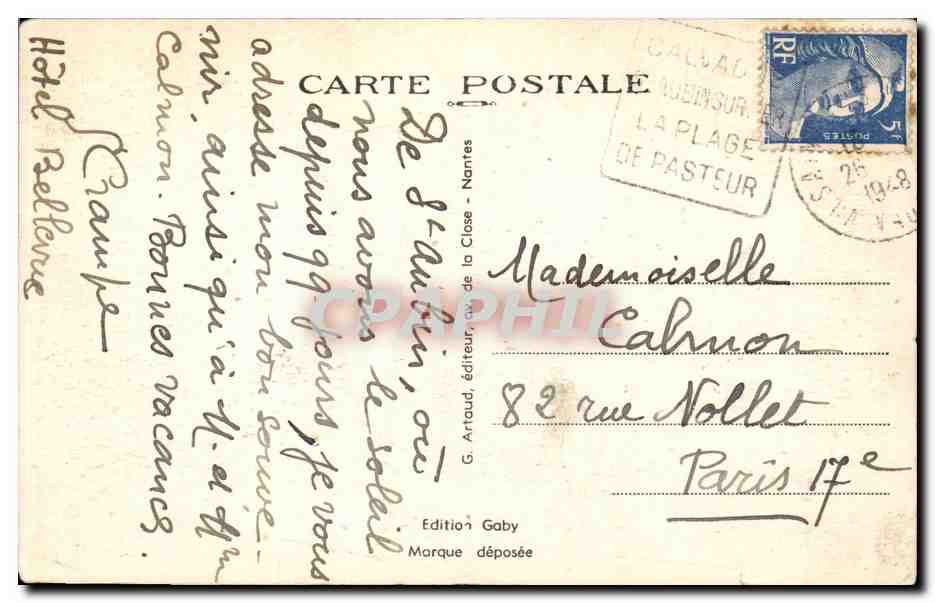 CARTE POSTALE
De St Aubin, où
nous avons le soleil
depuis qq jours, je vous
adresse mon bon souve-
nir ainsi qu'à M. et Mm
Calmon. Bonnes vacances.
Crampe
Hôtel Bellevue
G. Artaud, éditeur, av. de la Close - Nantes
Edition Gaby
Marque déposée
LA PLAGE
DE PASTEUR
RF
5F
POSTES
26
1948
Mademoiselle
Calmon
82 rue Nollet
Paris 17e
CPAPHIL